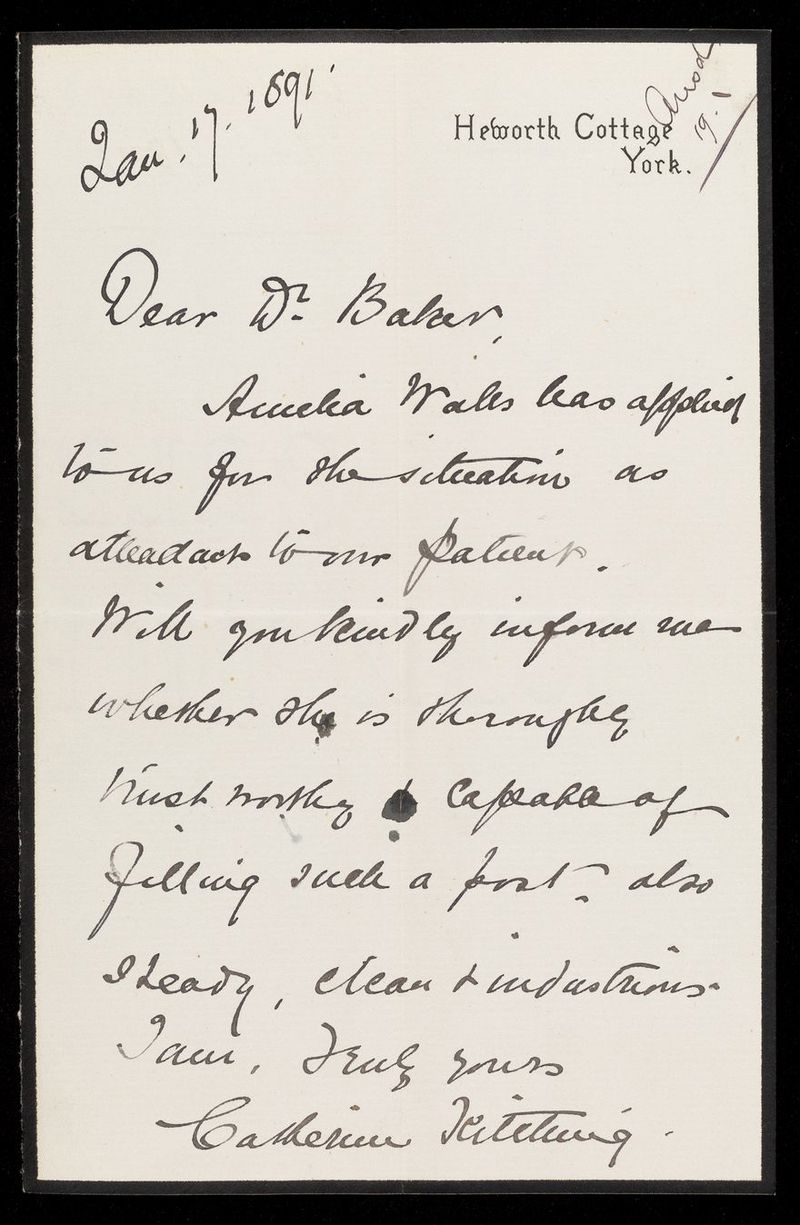 Jan. 17. 1891.
Heworth Cottage
York.
Ansd
19.1
Dear Dr. Baker,
Amelia Wales has applied
to us for the situation as
attendant to our patient.
Will you kindly inform me
whether she is thoroughly
trust worthy & capable of
filling such a post. also
steady, clean & industrious.
I am, truly yours
Catherine Kitching.